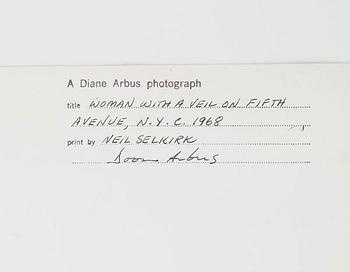 A Diane Arbus photograph
title WOMAN WITH A VEIL ON FIFTH
AVENUE, N.Y.C. 1968
print by NEIL SELKIRK
Doon Arbus